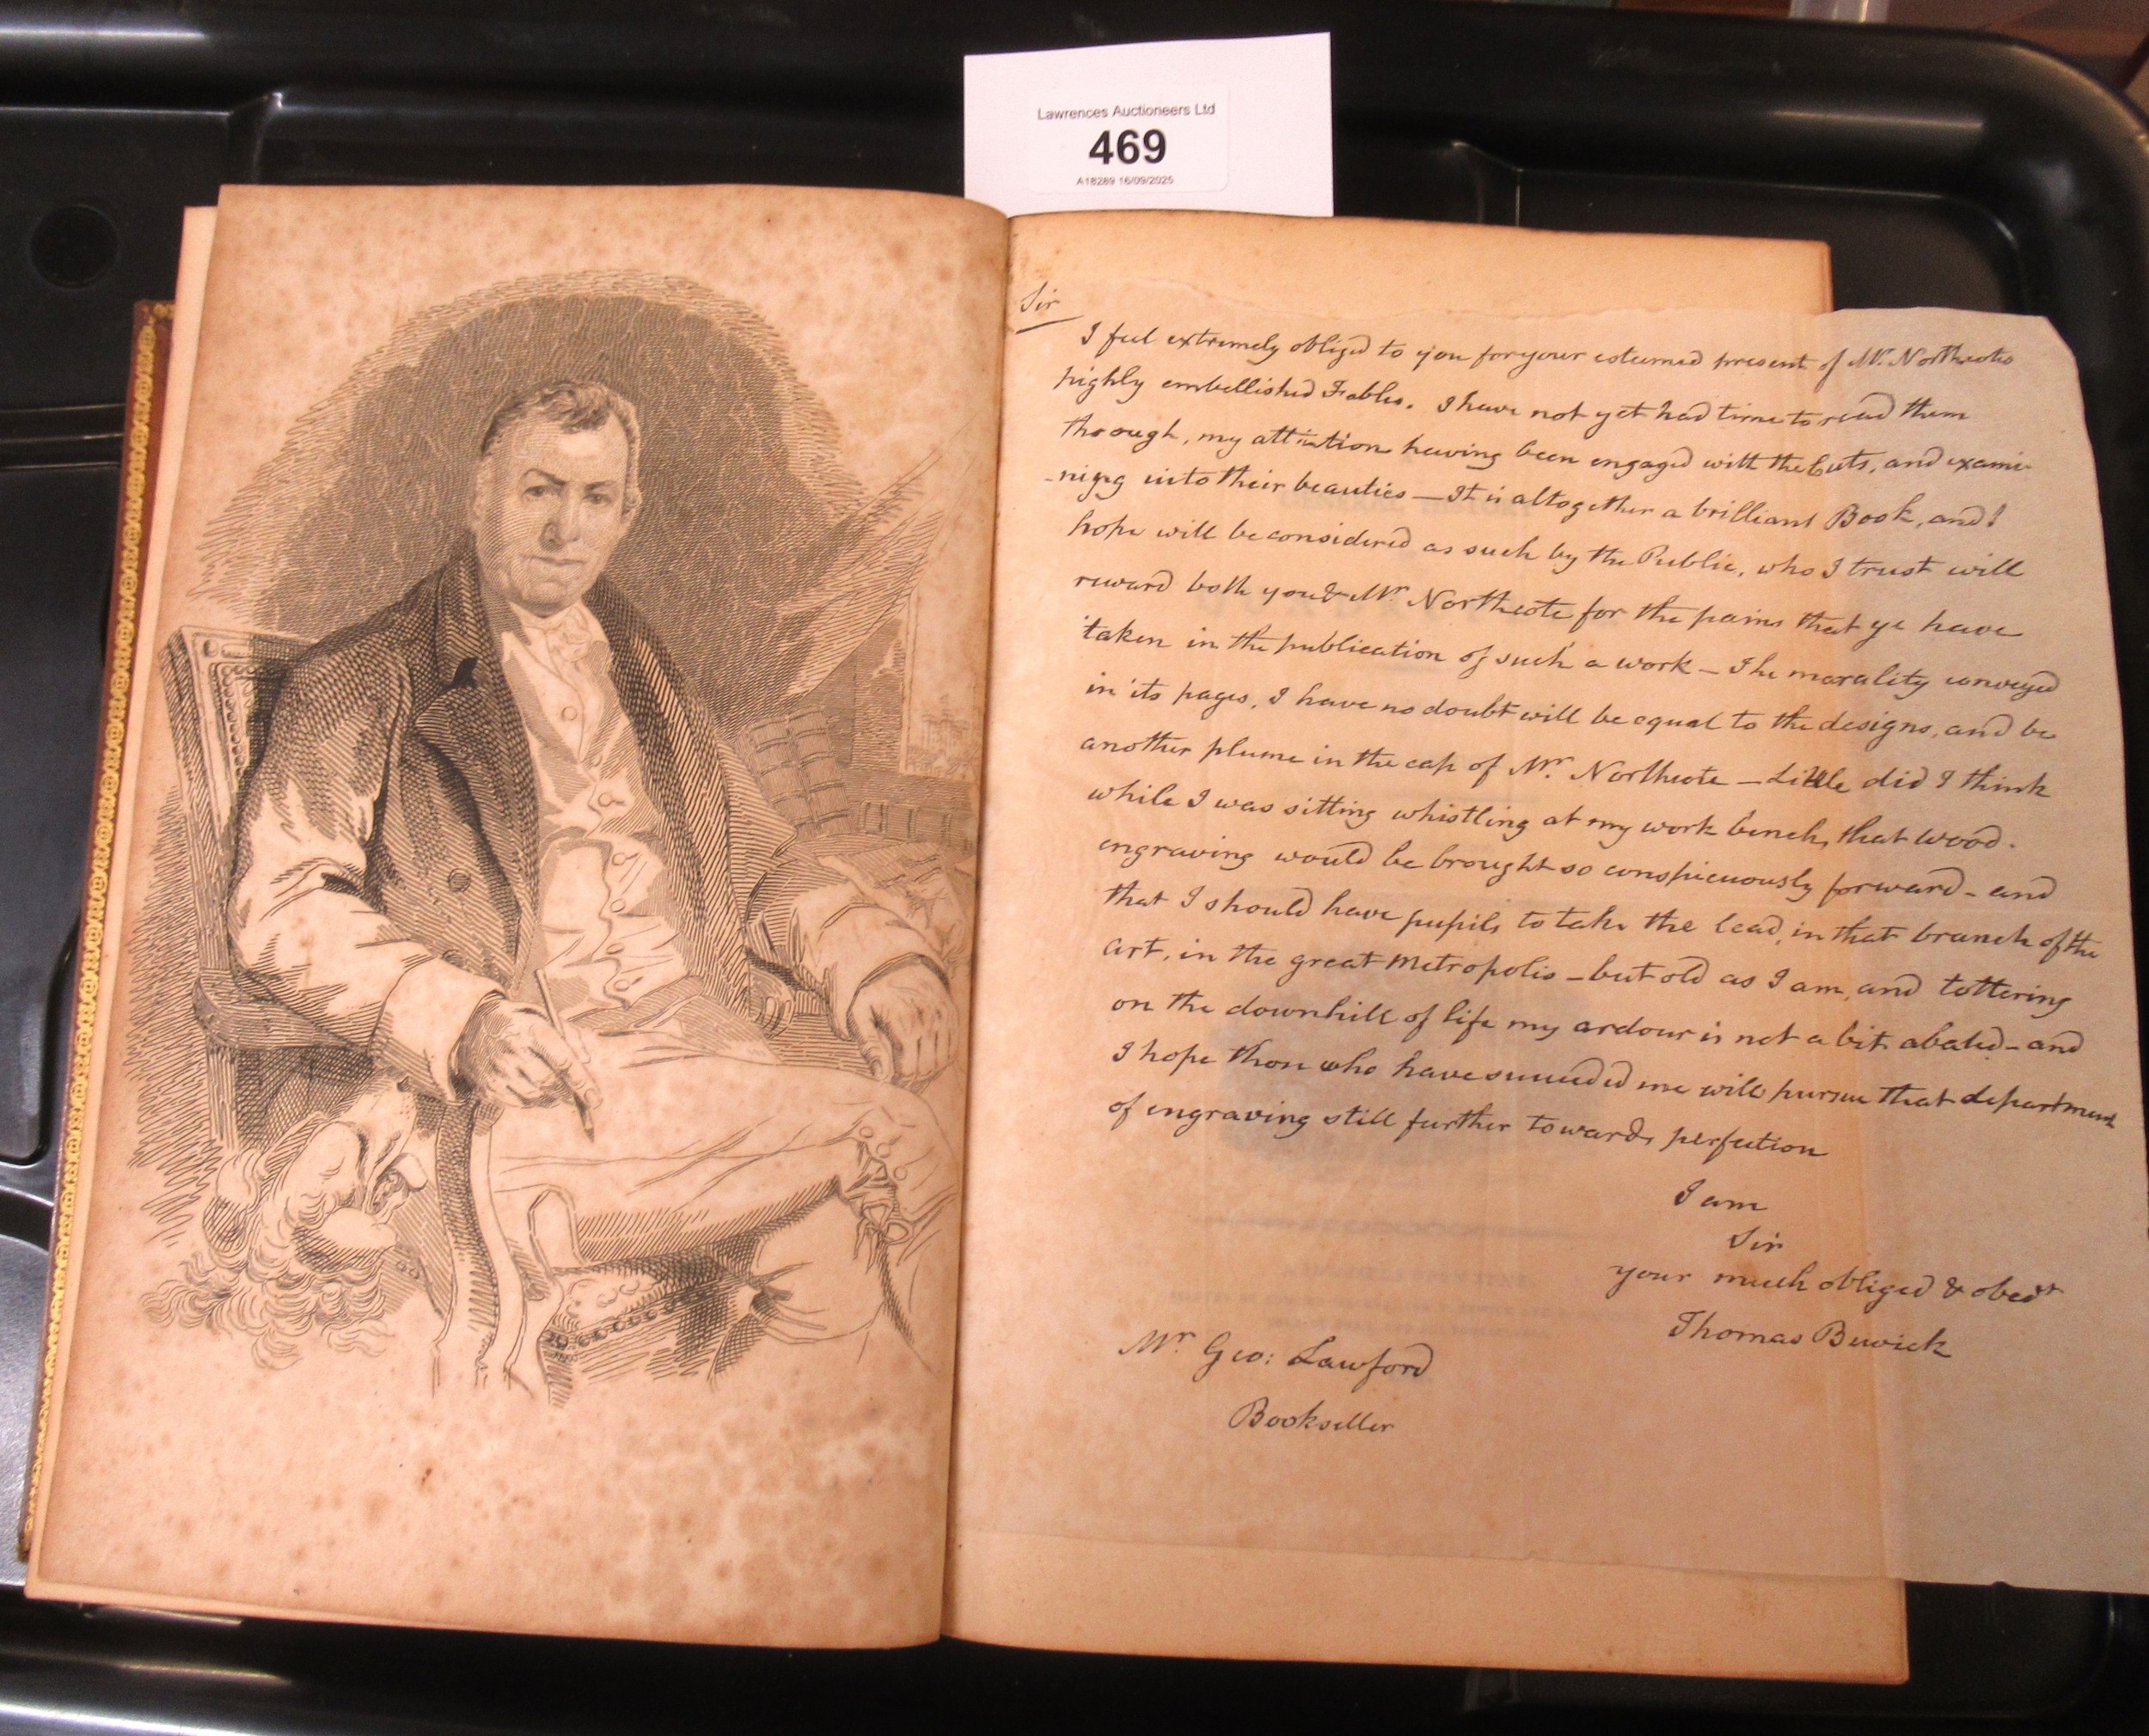 Lawrences Auctioneers Ltd
469
A18289 16/09/2025
Sir
I feel extremely obliged to you for your esteemed present of Mr. Northcotes
highly embellished Fables. I have not yet had time to read them
through, my attention having been engaged with the Cuts, and exami-
-ning into their beauties — It is altogether a brilliant Book, and I
hope will be considered as such by the Public, who I trust will
reward both you & Mr. Northcote for the pains that ye have
taken in the publication of such a work — The morality conveyed
in its pages, I have no doubt will be equal to the designs, and be
another plume in the cap of Mr. Northcote — Little did I think
while I was sitting whistling at my work bench, that wood-
engraving would be brought so conspicuously forward - and
that I should have pupils to take the lead, in that branch of the
art, in the great Metropolis - but old as I am, and tottering
on the downhill of life my ardour is not a bit abated - and
I hope those who have succeeded me will pursue that department
of engraving still further towards perfection
I am
Sir
your much obliged & obedt
Thomas Bewick
Mr. Geo: Lawford
Bookseller